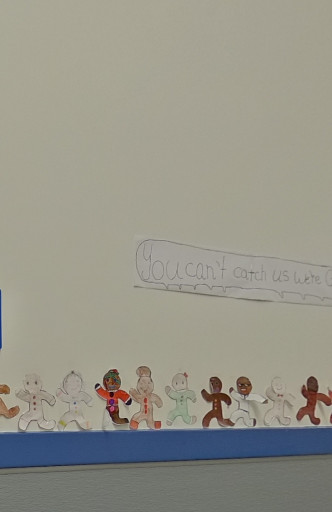 You can't catch us we're